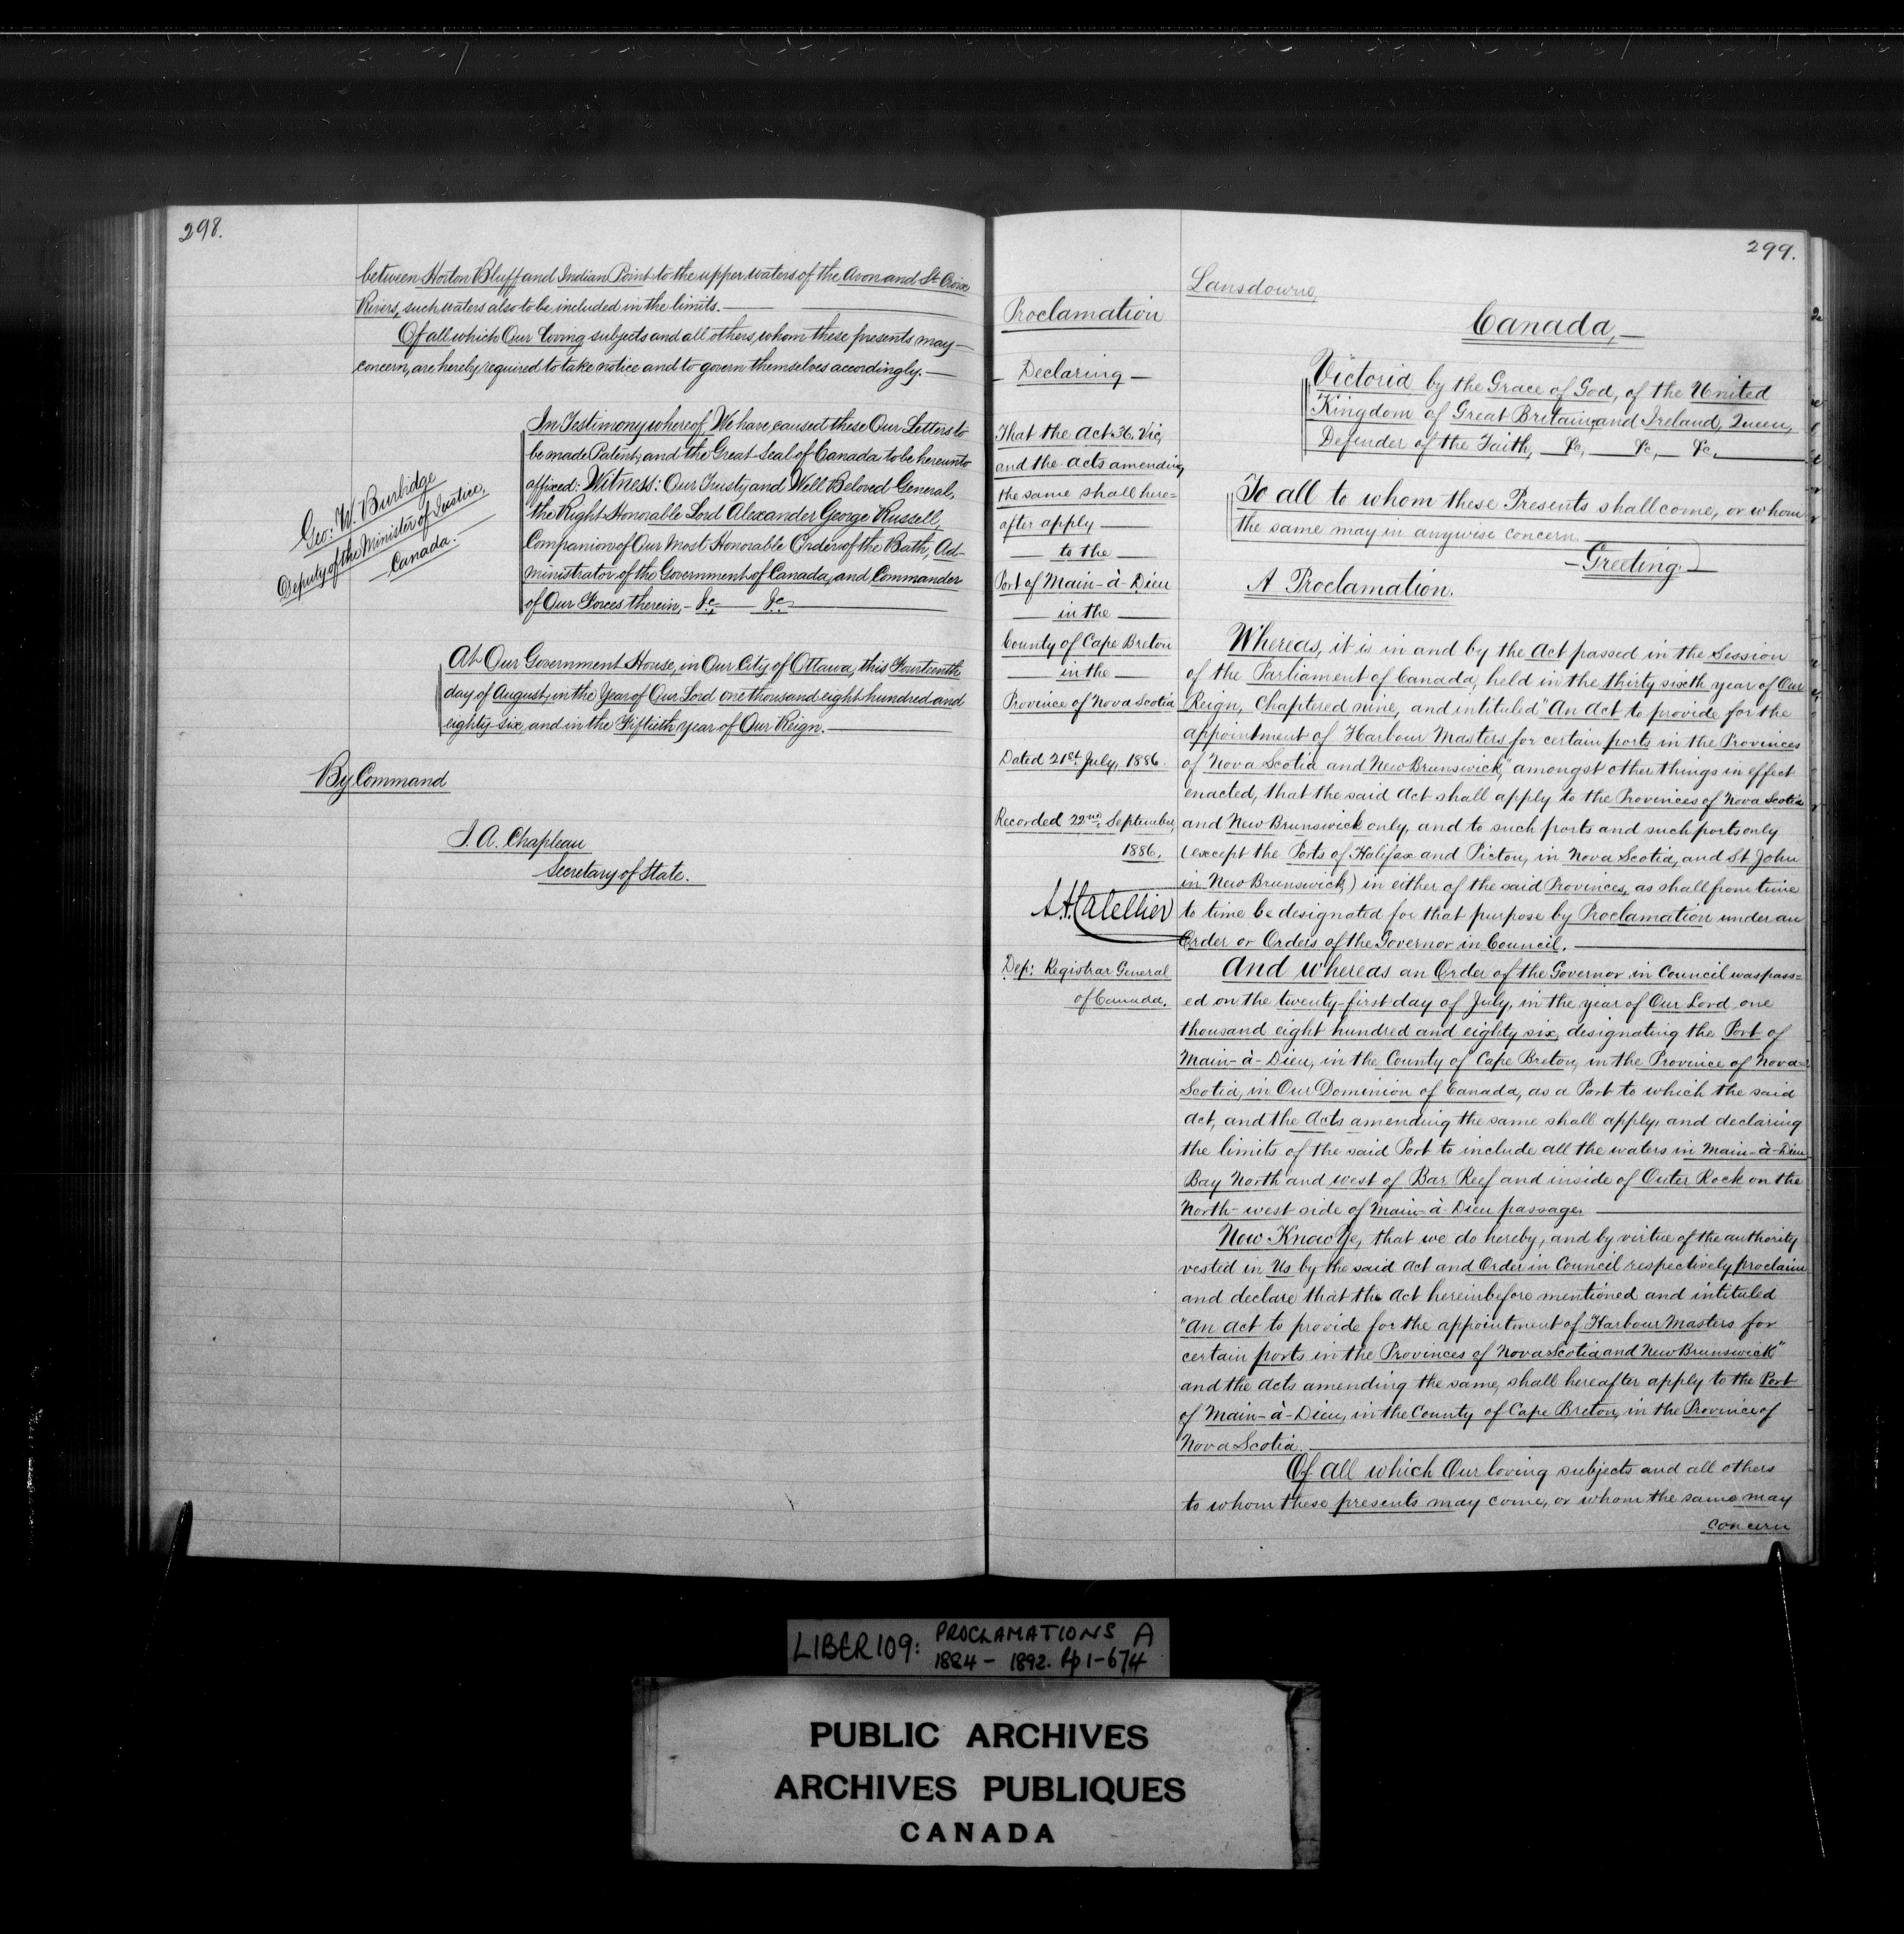 298.
between Horton Bluff and Indian Point to the upper waters of the Avon and St. Croix
Rivers, such waters also to be included in the limits.
Of all which Our loving subjects and all others, whom these presents may
concern, are hereby required to take notice and to govern themselves accordingly.
In Testimony whereof, We have caused these Our Letters to
be made Patent, and the Great Seal of Canada to be hereunto
affixed: Witness: Our Trusty and Well Beloved General,
the Right Honorable Lord Alexander George Russell,
Companion of Our Most Honorable Order of the Bath, Ad-
ministrator of the Government of Canada, and Commander
of Our Forces therein, - &c, &c
Geo: W. Burbidge
Deputy of the Minister of Justice,
Canada.
At Our Government House, in Our City of Ottawa, this Fourteenth
day of August, in the Year of Our Lord one thousand eight hundred and
eighty six, and in the Fiftieth year of Our Reign.
By Command
J. A. Chapleau
Secretary of State.
299.
Proclamation
Declaring
That the Act 36. Vic,
and the Acts amending
the same shall here=
after apply
to the
Port of Main-à-Dieu
in the
County of Cape Breton
in the
Province of Nova Scotia
Dated 21st July, 1886.
Recorded 22nd September,
1886.
Dep: Registrar General
of Canada.
Lansdowne,
Canada,
Victoria by the Grace of God, of the United
Kingdom of Great Britain and Ireland, Queen,
Defender of the Faith, &c, &c, &c,
To all to whom these Presents shall come, or whom
the same may in anywise concern.
Greeting.
A Proclamation.
Whereas, it is in and by the Act passed in the Session
of the Parliament of Canada, held in the thirty sixth year of Our
Reign, Chaptered nine, and intituled "An Act to provide for the
appointment of Harbour Masters for certain ports in the Provinces
of Nova Scotia and New Brunswick," amongst other things in effect
enacted, that the said Act shall apply to the Provinces of Nova Scotia
and New Brunswick only, and to such ports and such ports only
(except the Ports of Halifax and Pictou, in Nova Scotia, and St John
in New Brunswick,) in either of the said Provinces, as shall from time
to time be designated for that purpose by Proclamation under an
Order or Orders of the Governor in Council.
And whereas an Order of the Governor in Council was pass=
ed on the twenty-first day of July, in the year of Our Lord one
thousand eight hundred and eighty six, designating the Port of
Main-à-Dieu, in the County of Cape Breton, in the Province of Nova=
Scotia, in Our Dominion of Canada, as a Port to which the said
Act, and the Acts amending the same shall apply, and declaring
the limits of the said Port to include all the waters in Main-à-Dieu
Bay North and west of Bar Reef and inside of Outer Rock on the
North-west side of Main-à-Dieu passage.
Now Know Ye, that we do hereby, and by virtue of the authority
vested in Us by the said Act and Order in Council respectively proclaim
and declare that the Act hereinbefore mentioned and intituled
"An Act to provide for the appointment of Harbour Masters for
certain ports in the Provinces of Nova Scotia and New Brunswick"
and the Acts amending the same, shall hereafter apply to the Port
of Main-à-Dieu, in the County of Cape Breton, in the Province of
Nova Scotia.
Of all which Our loving subjects and all others
to whom these presents may come, or whom the same may
concern
LIBER 109: PROCLAMATIONS A
1884 - 1892. pp 1-674
PUBLIC ARCHIVES
ARCHIVES PUBLIQUES
CANADA